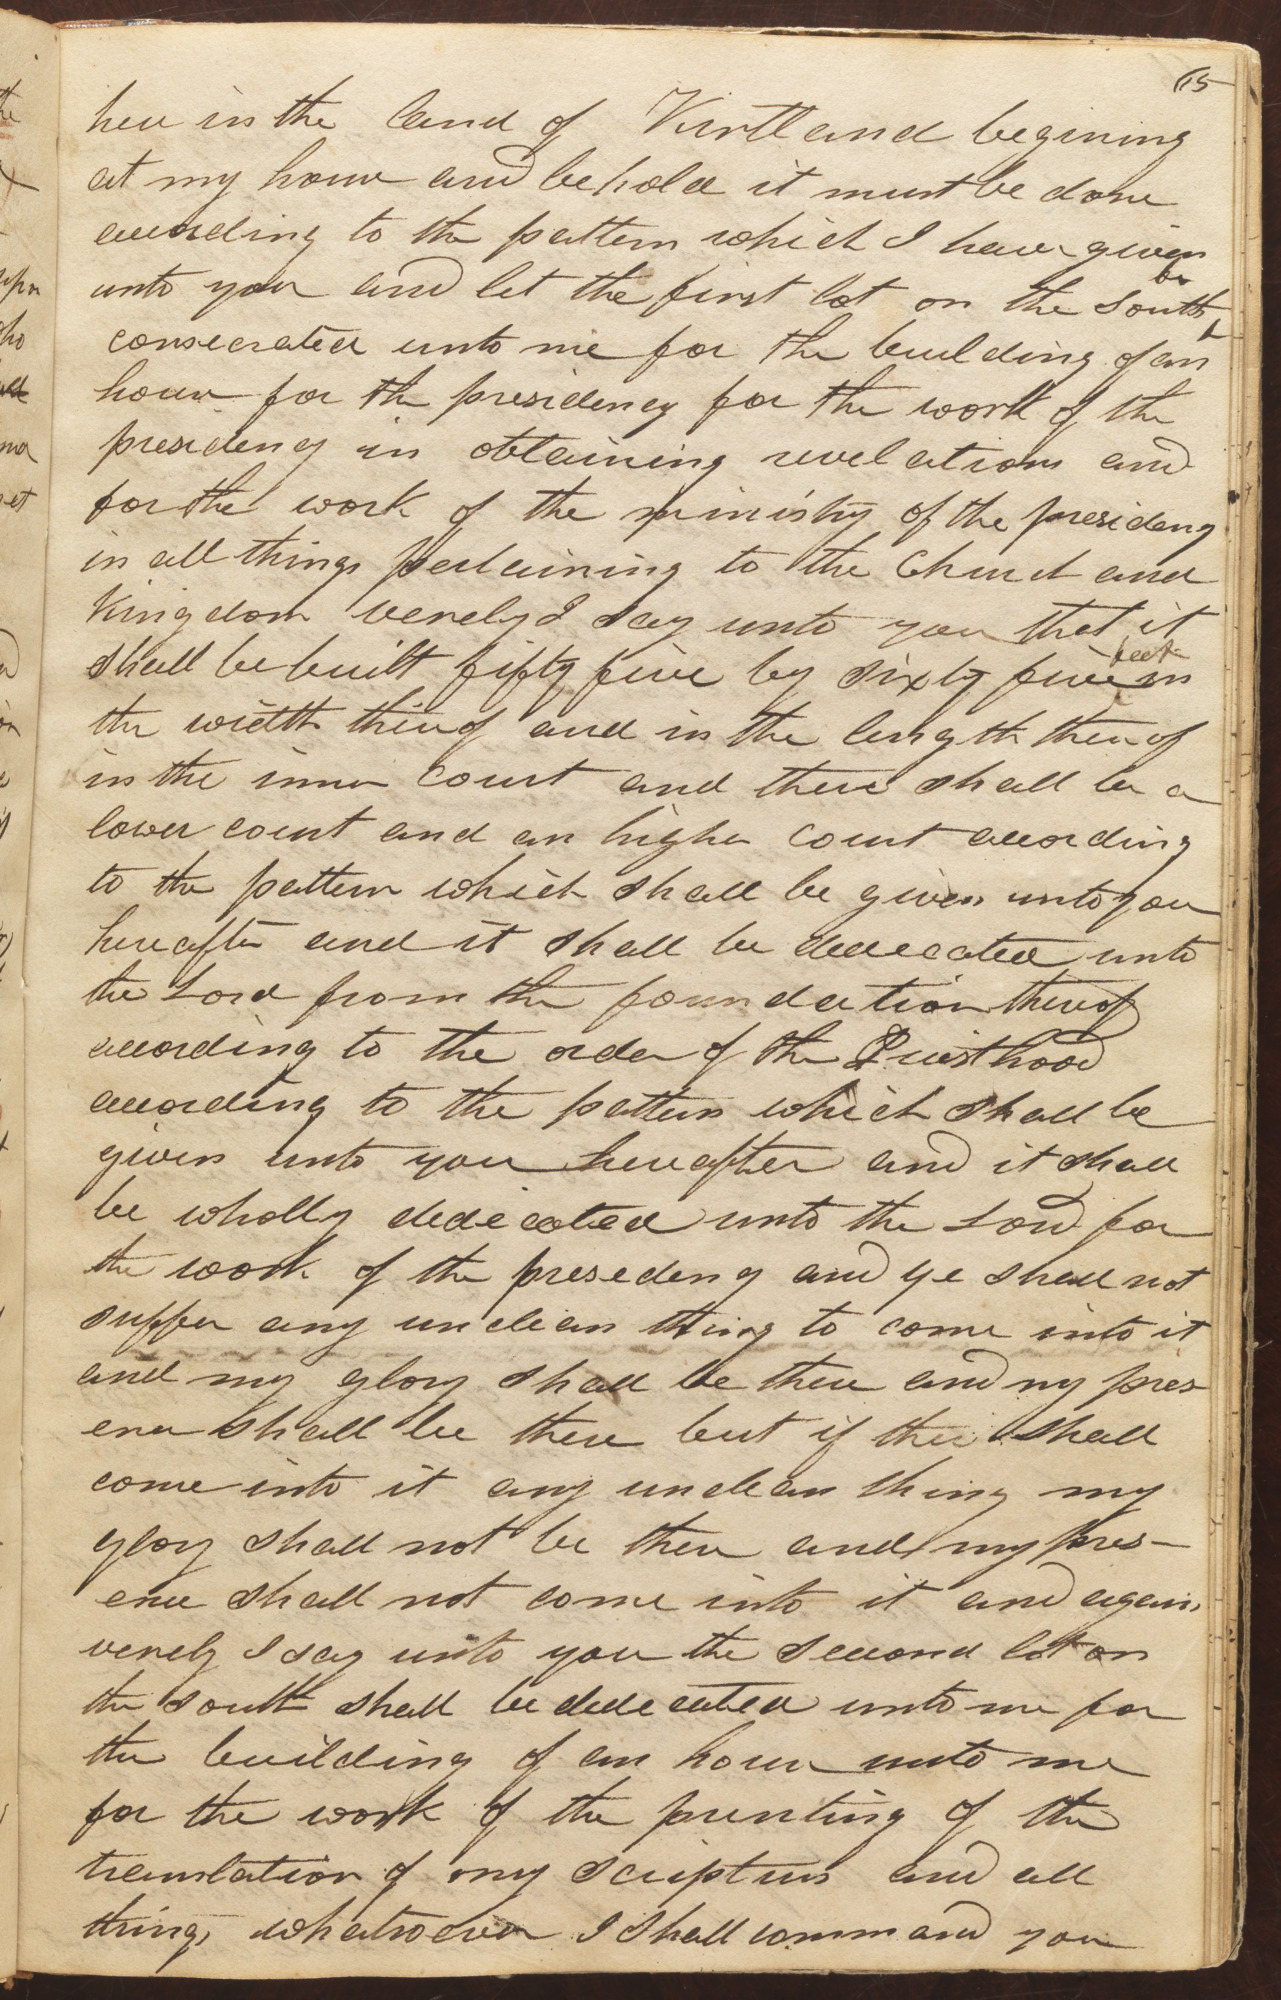 65
here in the land of Kirtland begining
at my house and behold it must be done
according to the pattern which I have given
unto you and let the first lot on the South be
consecrated unto me for the building of an
house for the presidency for the work of the
presidency in obtaining revelations and
for the work of the ministry of the presidency
in all things pertaining to the Church and
Kingdom verely I say unto you that it
shall be built fifty five by sixty five feet in
the width thereof and in the length thereof
in the inner court and there shall be a
lower court and an higher court according
to the pattern which shall be given unto you
hereafter and it shall be dedecated unto
the Lord from the foundation thereof
according to the order of the Priesthood
according to the pattern which shall be
given unto you hereafter and it shall
be wholly dedecated unto the Lord for
the work of the presedency and ye shall not
suffer any unclean thing to come into it
and my glory shall be there and my pres
ence shall be there but if there shall
come into it any unclean thing my
glory shall not be there and my pres-
ence shall not come into it and again,
verely I say unto you the second lot on
the South shall be dedecated unto me for
the building of an house unto me
for the work of the printing of the
translation of my scriptures and all
things whatsoever I shall command you